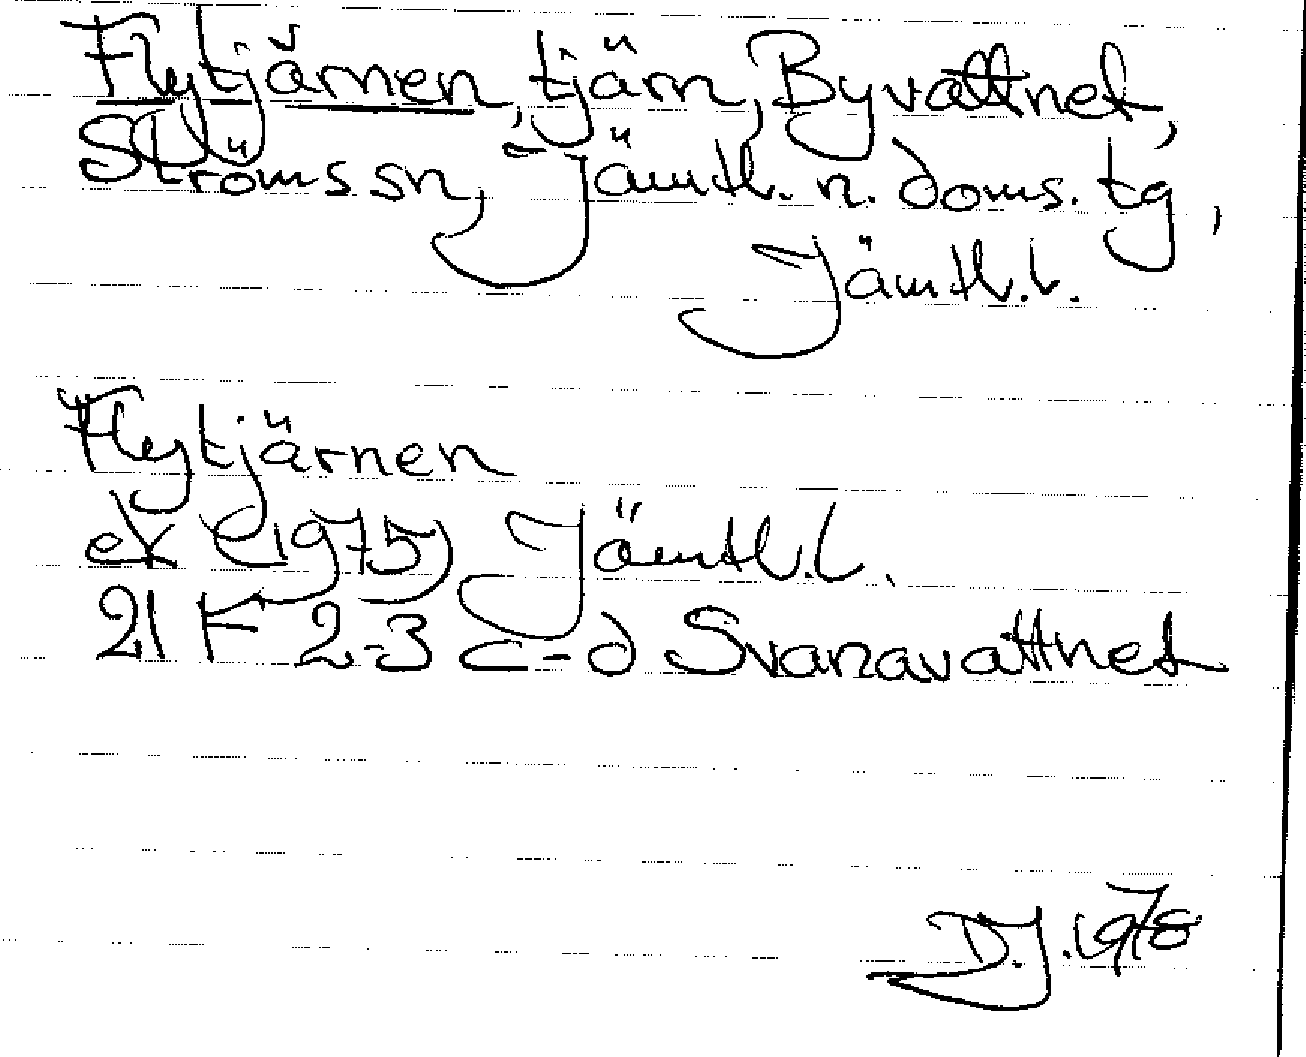 Flytjärnen, tjärn, Byvattnet,
Ströms sn, Jämtl. n. doms. tg,
Jämtl. l.
Flytjärnen
ek (1975) Jämtl. l.
21 F 2-3 c-d Svanavattnet
D.J. 1978